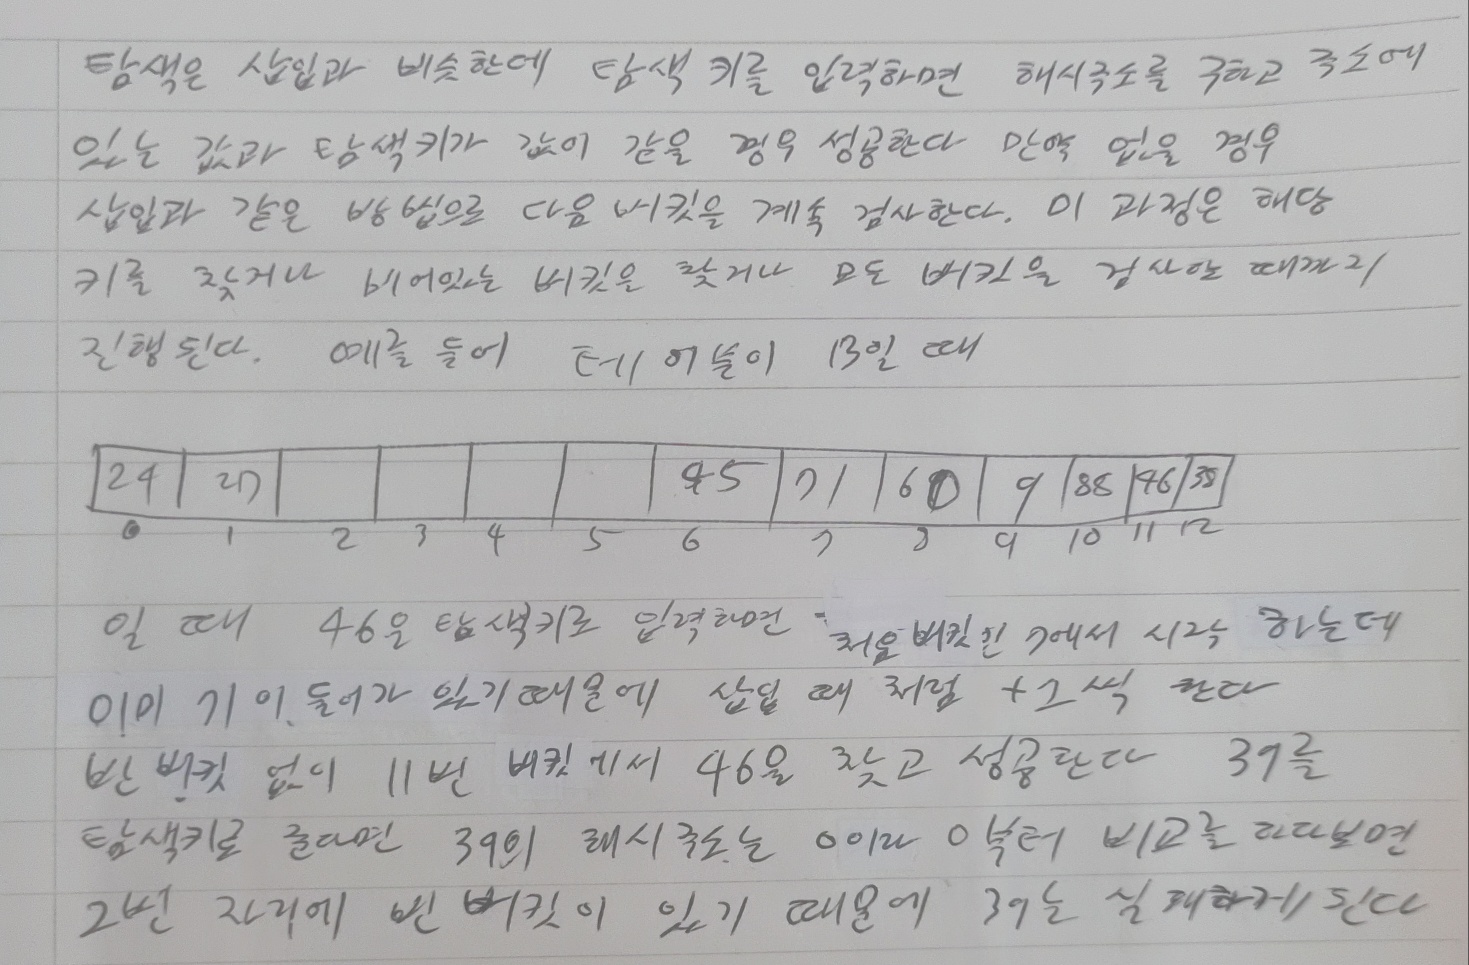 탐색은 삽입과 비슷한데 탐색 키를 입력하면 해시주소를 구하고 주소에
있는 값과 탐색키가 값이 같을 경우 성공한다 만약 없을 경우
삽입과 같은 방법으로 다음 버킷을 계속 검사한다. 이 과정은 해당
키를 찾거나 비어있는 버킷을 찾거나 모든 버킷을 검사할 때까지
진행된다. 예를 들어 테이블이 13일 때
24 27 45 71 60 9 88 46 38
0 1 2 3 4 5 6 7 8 9 10 11 12
일 때 46을 탐색키로 입력하면 처음 버킷인 7에서 시작 하는데
이미 71이 들어가 있기때문에 삽입 때 처럼 +1씩 한다
빈 버킷 없이 11번 버킷에서 46을 찾고 성공한다 39를
탐색키로 준다면 39의 해시주소는 0이라 0부터 비교를 하다보면
2번 자리에 빈 버킷이 있기 때문에 39는 실패하게된다